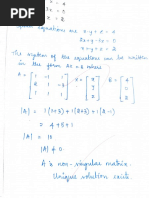 x = 2
equations are x-y+z = 4
2x+y-3z = 0
x+y+z = 2
The system of the equations can be written
in the form AX = B where
A = [1 -1 1 / 2 1 -3 / 1 1 1] X = [x / y / z] B = [4 / 0 / 2]
|A| = 1(1+3) + 1(2+3) + 1(2-1)
= 4+5+1
|A| = 10
|A| ≠ 0
A is non-singular matrix.
Unique solution exists.